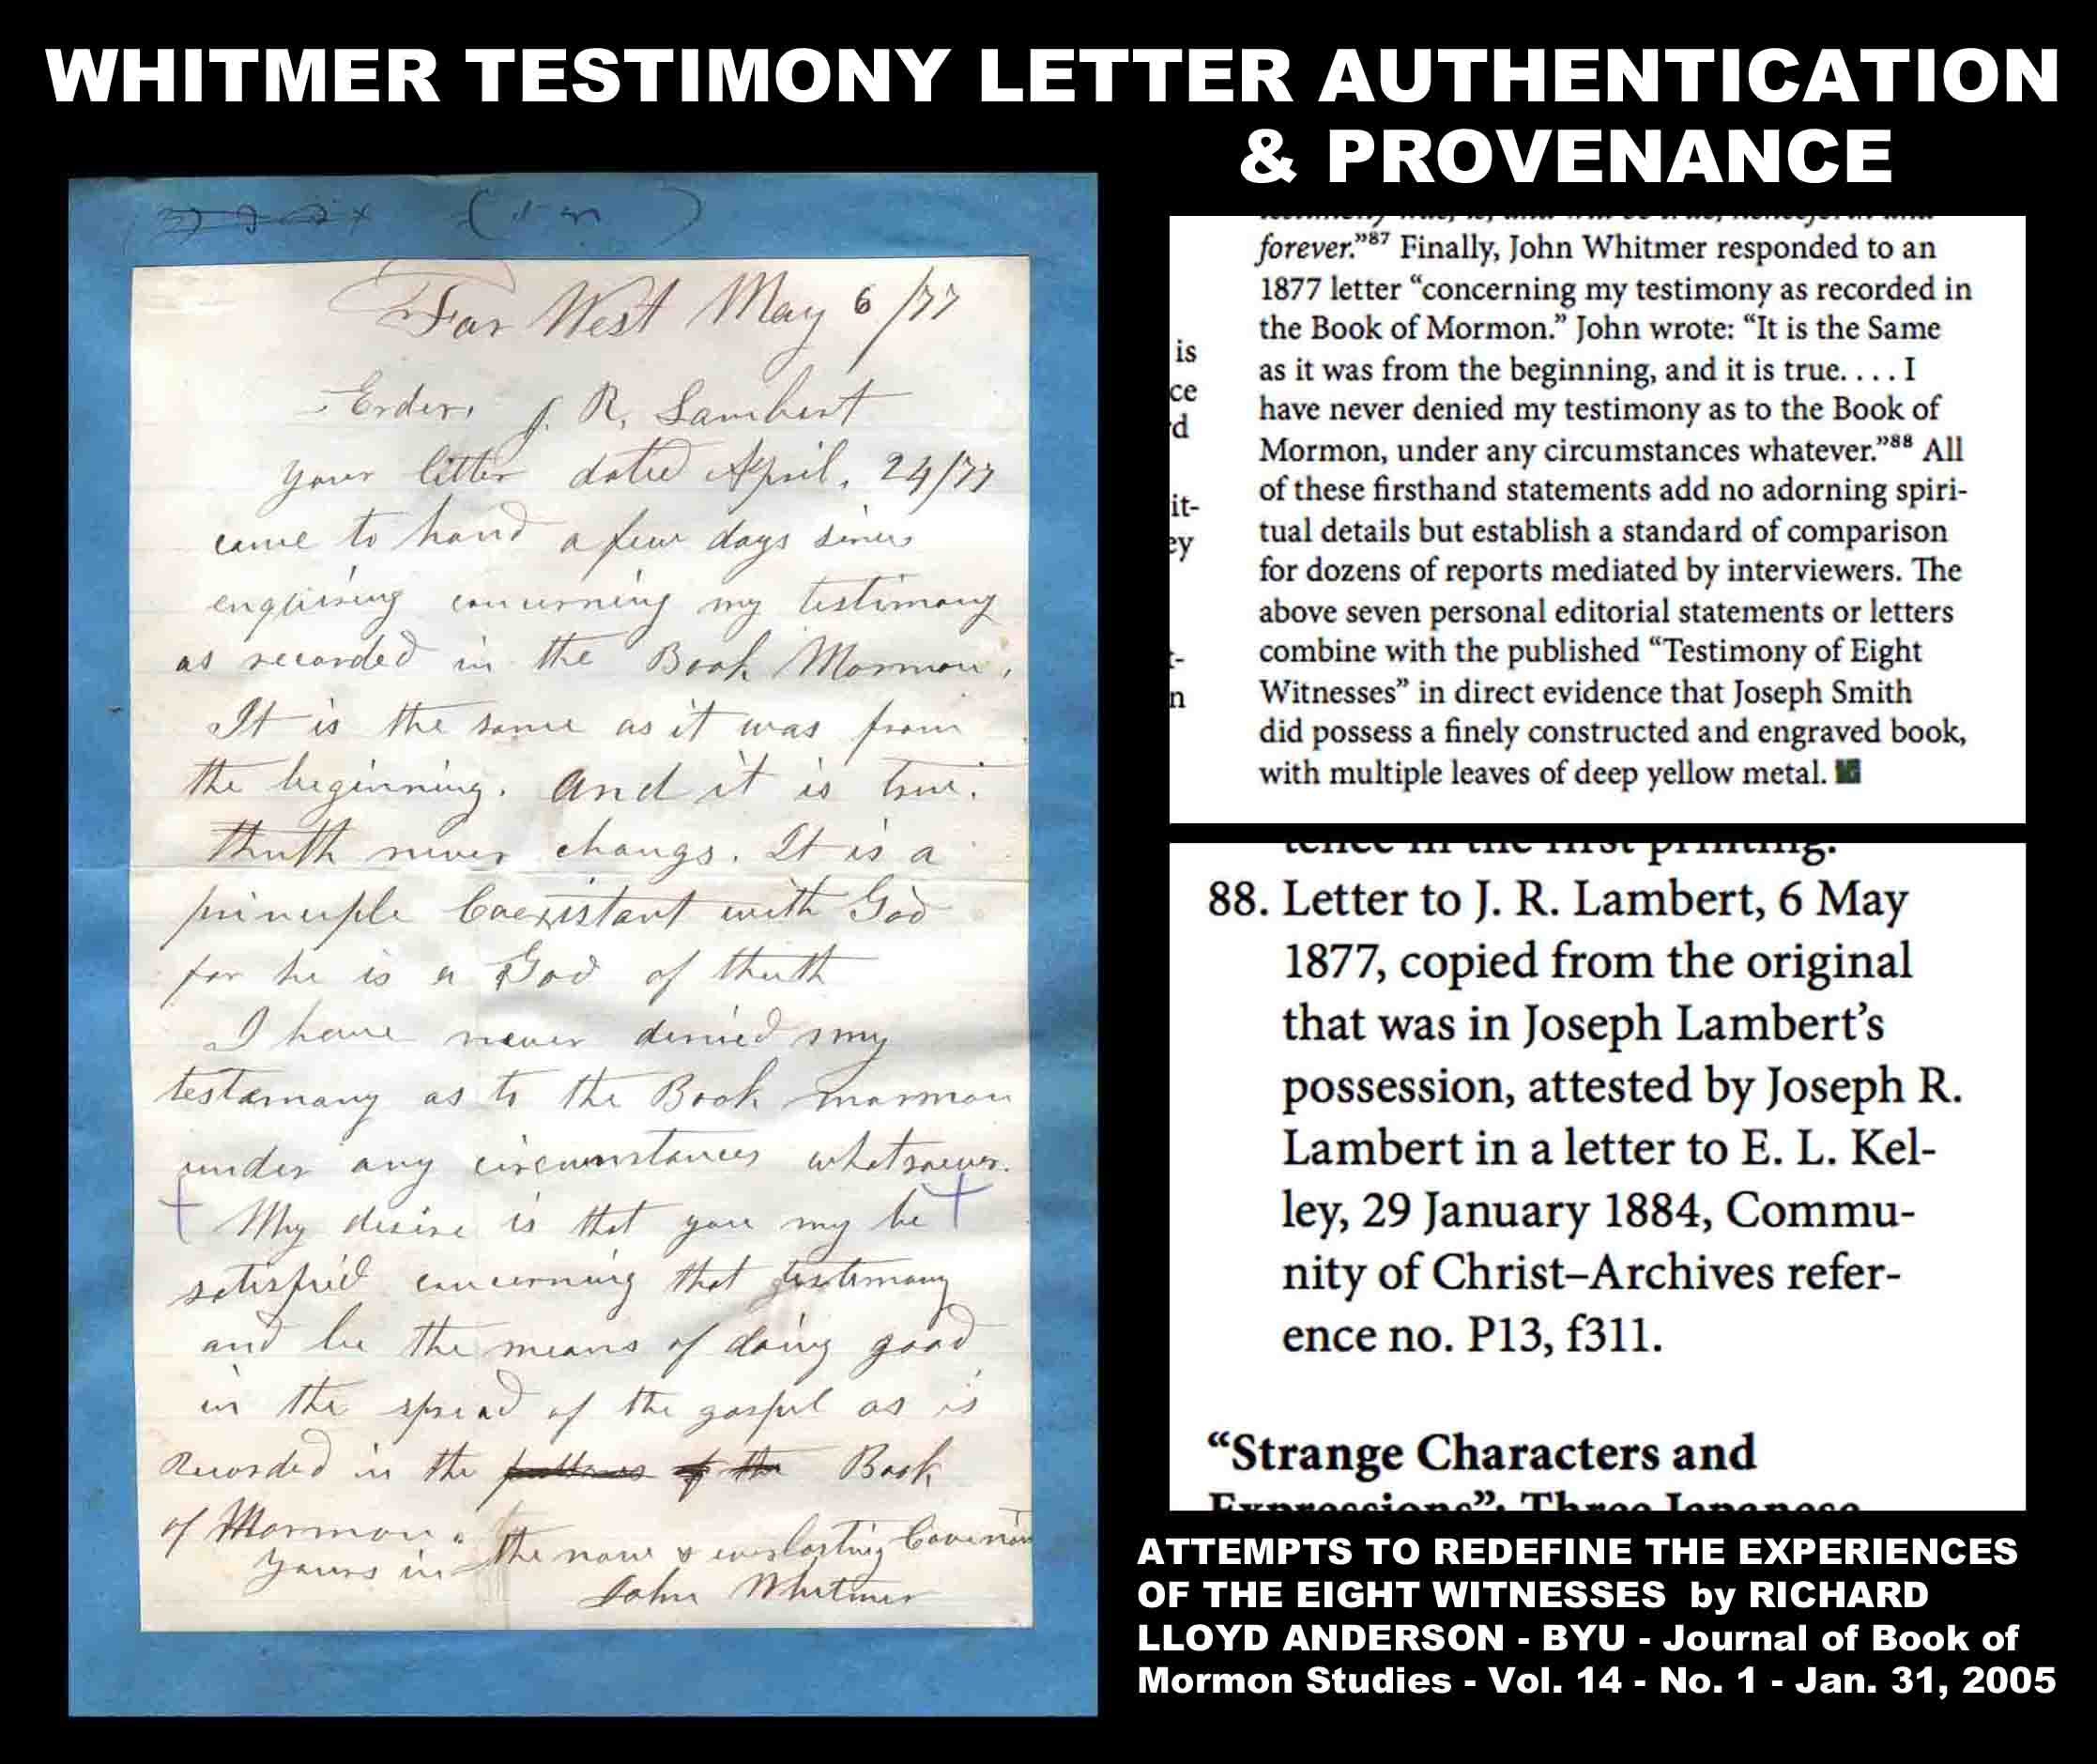 WHITMER TESTIMONY LETTER AUTHENTICATION
& PROVENANCE
Far West May 6/77
J. R. Lambert
your letter dated April. 24/77
came to hand a few days since
enquiring concerning my testimony
as recorded in the Book Mormon,
It is the same as it was from
the beginning. and it is true.
thuth never changs. It is a
principle Coexistant with God
for he is a God of thuth
I have never denied my
testamony as to the Book mormon
under any circumstances whatsoever.
My desire is that you my be
satisfied concerning that testimony
and be the means of doing good
in the spread of the gospel as is
Recorded in the Book
of Mormon.
Yours in the nove & everlasting Covenan
John Whitmer
forever.”87 Finally, John Whitmer responded to an
1877 letter “concerning my testimony as recorded in
the Book of Mormon.” John wrote: “It is the Same
as it was from the beginning, and it is true. . . . I
have never denied my testimony as to the Book of
Mormon, under any circumstances whatever.”88 All
of these firsthand statements add no adorning spiri-
tual details but establish a standard of comparison
for dozens of reports mediated by interviewers. The
above seven personal editorial statements or letters
combine with the published “Testimony of Eight
Witnesses” in direct evidence that Joseph Smith
did possess a finely constructed and engraved book,
with multiple leaves of deep yellow metal.
is
ce
rd
it-
ey
t-
n
tence in the first printing.
88. Letter to J. R. Lambert, 6 May
1877, copied from the original
that was in Joseph Lambert’s
possession, attested by Joseph R.
Lambert in a letter to E. L. Kel-
ley, 29 January 1884, Commu-
nity of Christ–Archives refer-
ence no. P13, f311.
“Strange Characters and
Expressions”: Three Japanese
ATTEMPTS TO REDEFINE THE EXPERIENCES
OF THE EIGHT WITNESSES by RICHARD
LLOYD ANDERSON - BYU - Journal of Book of
Mormon Studies - Vol. 14 - No. 1 - Jan. 31, 2005